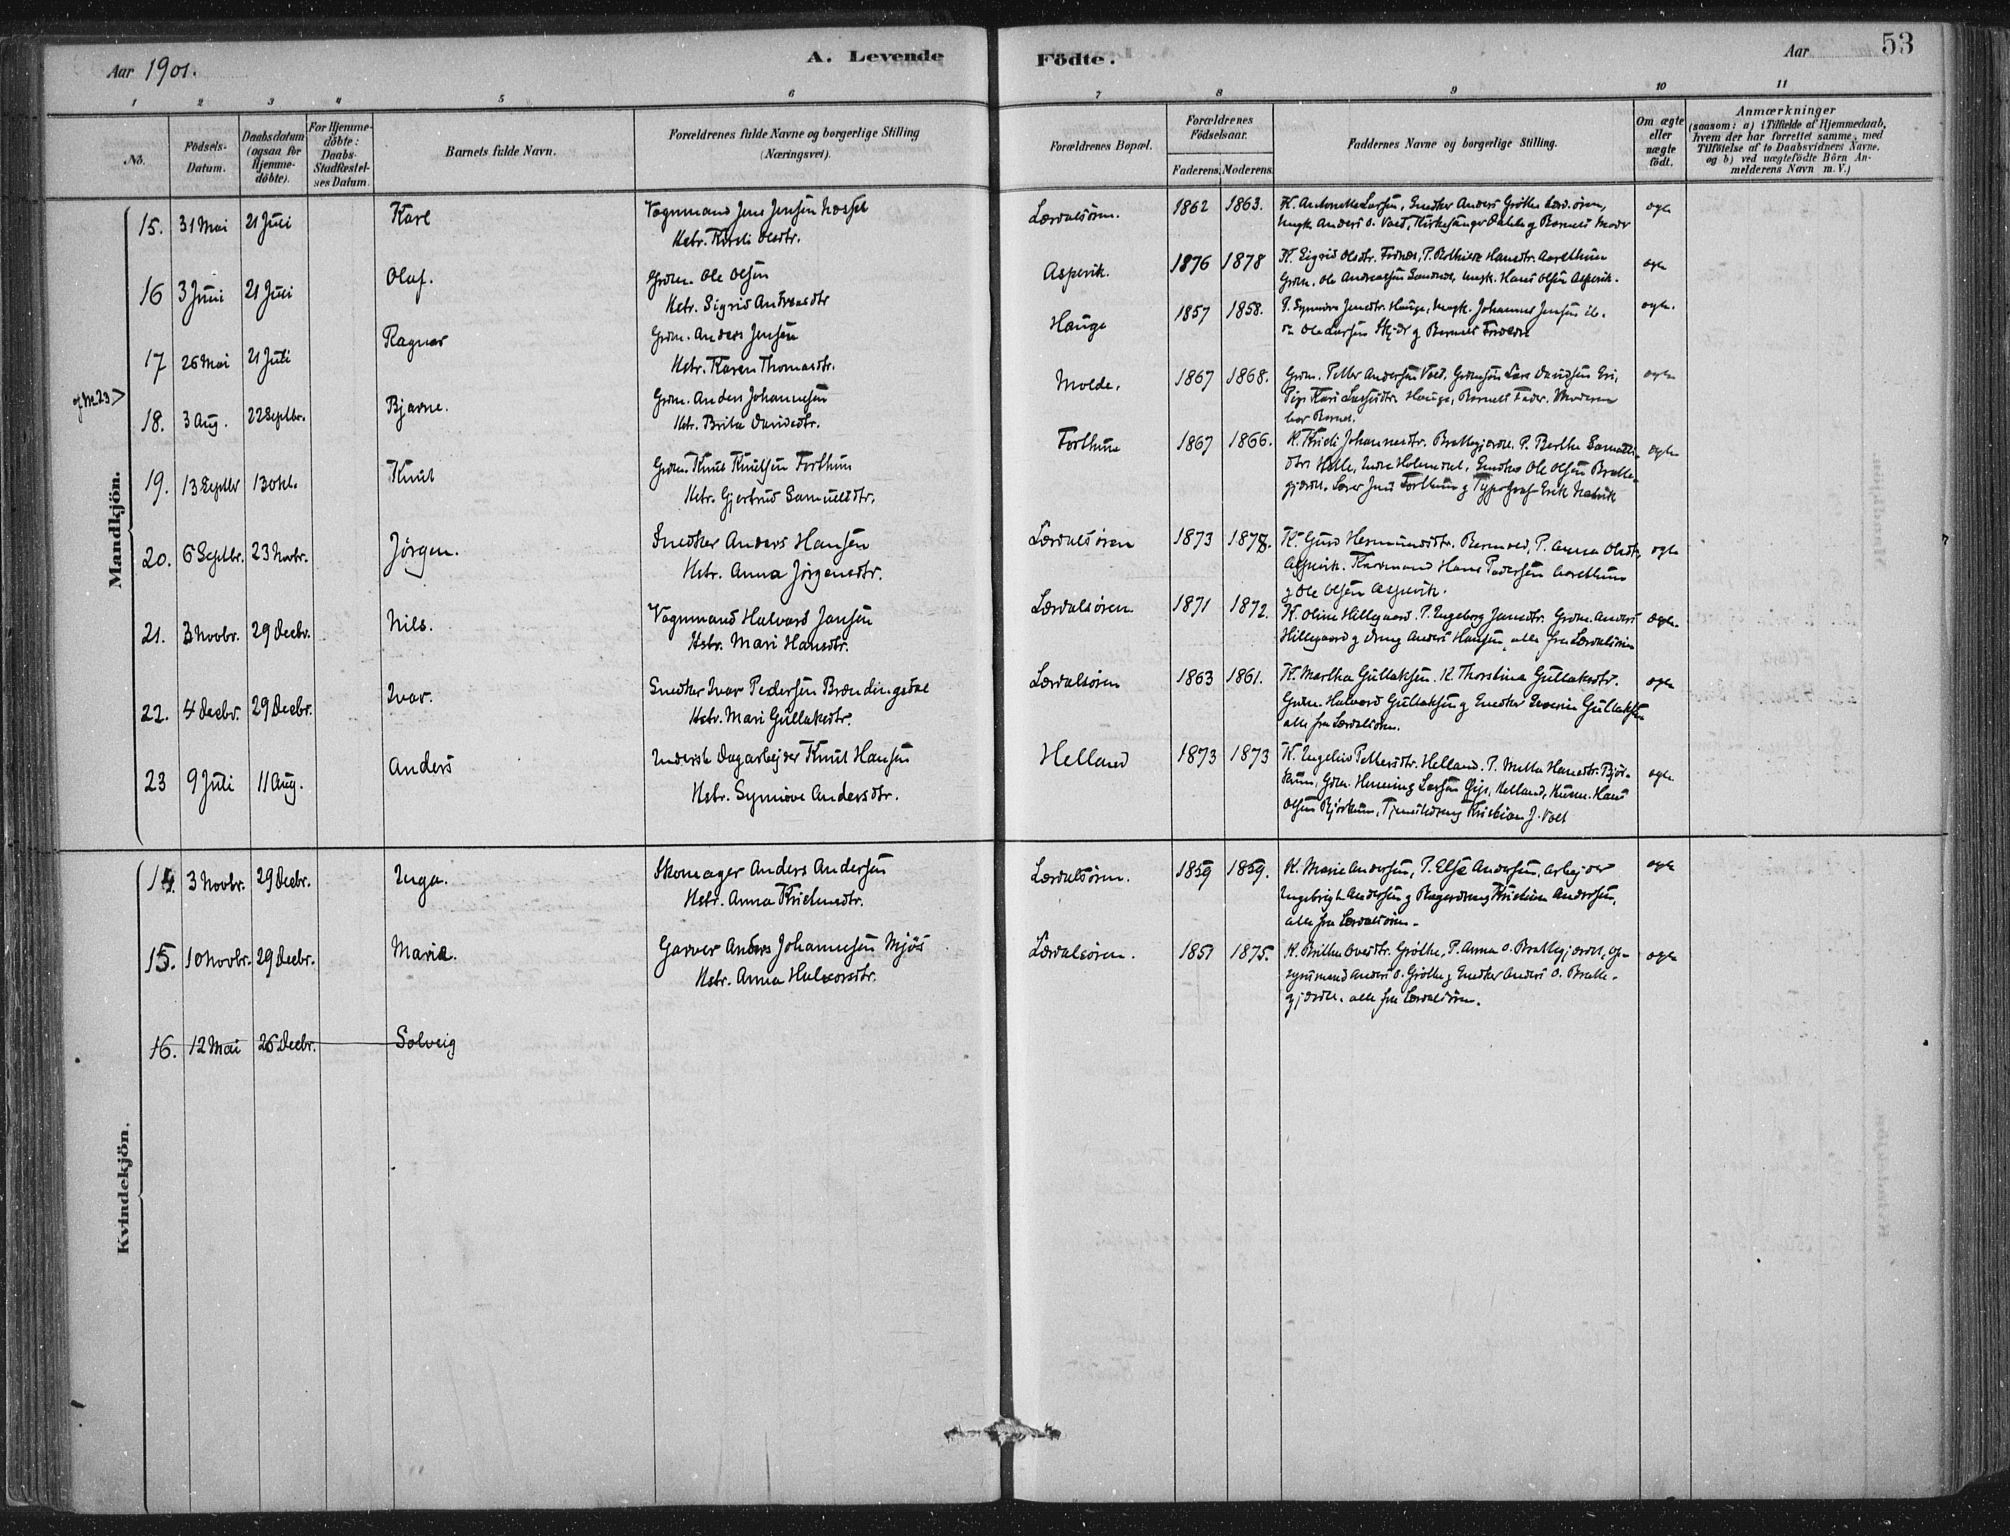 Aar 1901.
A. Levende
Födte.
Aar
53
1 2 3 4 5 6 7 8 9 10 11
No.
Födsels-Datum.
Daabsdatum (ogsaa for Hjemme-döbte).
For Hjemme-döbte: Daabs-Stadfæstel-ses Datum.
Barnets fulde Navn.
Forældrenes fulde Navne og borgerlige Stilling
(Næringsvei).
Forældrenes Bopæl.
Forældrenes Födselsaar.
Faderens. Moderens.
Faddernes Navne og borgerlige Stilling.
Om ægte eller uægte födt.
Anmærkninger
(saasom: a) i Tilfælde af Hjemmedaab,
hvem der har forrettet samme, med
Tilföielse af to Daabsvidners Navne.
og b) ved uægtefödte Börn An-
melderens Navn m. V.)
Mandkjön.
15. 31 Mai 21 Juli Karl
Vognmand Jens Jensen
Hstr. Kirsti Olsdtr.
Lærdalsøren. 1862 1863.
K. Antonette Larsen, Snedker Anders Grøthe Lærd.øren,
Ungk. Anders O. Vold, Kirkesanger Dahle og Barnets Moder
ægte
16 3 Juni 21 Juli Olaf.
Grdm. Ole Olsen
Hstr. Sigrid Andreasdtr
Aspevik. 1876 1878
K. Sigrid Olsdtr. Fodnes, P. Bothilde Hansdtr. Aarethun
Grdm. Ole Andreassen Sandnes, Ungk. Hans Olsen Aspevik.
ægte
17 26 Mai 21 Juli Ragnar
Grdm. Anders Jensen
Hstr. Karen Thomasdtr.
Hauge 1857 1858.
P. Synneva Jensdtr. Hauge, Ungk. Johannes Jensen ib.
og Barnets Forældre
ægte.
cf. No 23 >
18. 3 Aug. 22 Septbr. Bjarne.
Grdm. Anders Johannesen
Hstr. Brita Davidsdtr.
Molde. 1867 1868.
Grdm. Petter Andersen Vold, Grdmsøn Lars Davidsen Eri,
Pige Kari Lassesdtr. Hauge, Barnets Fader. Moderen
bar Barnet.
ægte
19. 13 Septbr 13 Okt. Knut
Grdm. Knut Knutsen Forthun
Hstr. Gjertrud Samuelsdtr.
Forthun 1867 1866.
K. Kristi Johannesdtr. Brattegjærde. P. Berthe Samuels-
dtr. Snedker Ole Olsen Bratte-
gjærde. Lærer Jens Forthun og Typograf Erik
ægte
20. 6 Septbr. 23 Novbr. Jørgen.
Snedker Anders Hansen
Hstr. Anna Jørgensdtr.
Lærdalsøren 1873 1878.
K. Guro Hermundsdtr. P. Anna Olsdtr.
Aspevik. Hans Pedersen Aarethun
og Ole Olsen Aspevik.
ægte
21. 3 Novbr. 29 Decbr. Nils.
Vognmand Halvard Jansen
Hstr. Mari Hansdtr.
Lærdalsøren 1871 1872.
K. Oline Hillegaard. P. Ingeborg Jansdtr. Grdm. Anders
Hillegaard og Anders Hansen, alle fra Lærdalsøren
ægte.
22. 4 Decbr. 29 Decbr. Ivar.
Snedker Ivar Pedersen
Hstr. Mari Gullaksdtr.
Lærdalsøren 1863 1861.
K. Martha Gullaksen. K. Thorstina Gullaksdtr.
Grdm. Halvard Gullaksen og Snedker Severin Gullaksen
alle fra Lærdalsøren.
ægte
23 9 Juli 11 Aug. Anders
Inderst Dagarbejder Knut Hansen
Hstr. Synnøve Andersdtr.
Helland 1873 1873
K. Pettersdtr. Helland. P. Metta Hansdtr. Bjør-
kum, Henning Larsen Helland, Husm. Hans
Olsen Bjørkum, Tjenestedreng Kristian J. Vold
ægte
Kvindekjön.
14. 3 Novbr. 29 Decbr. Inga.
Skomager Anders Andersen
Hstr. Anna Kristensdtr.
Lærdalsøren. 1859 1859.
K. Marie Andersen, P. Else Andersen, Arbejder
Ingebrigt Andersen og Kristian Andersen,
alle fra Lærdalsøren.
ægte
15. 10 Novbr. 29 Decbr. Maria.
Garver Anders Johannesen Mjøs
Hstr. Anna Halvorsdtr.
Lærdalsøren. 1851 1875.
K. Brithe Grøthe, P. Anna O. Brattegjærde, Op-
synsmand Anders O. Grøthe, Snedker Anders O. Bratte-
gjærde. alle fra Lærdalsøren.
ægte
16. 12 Mai 26 Decbr. Solveig